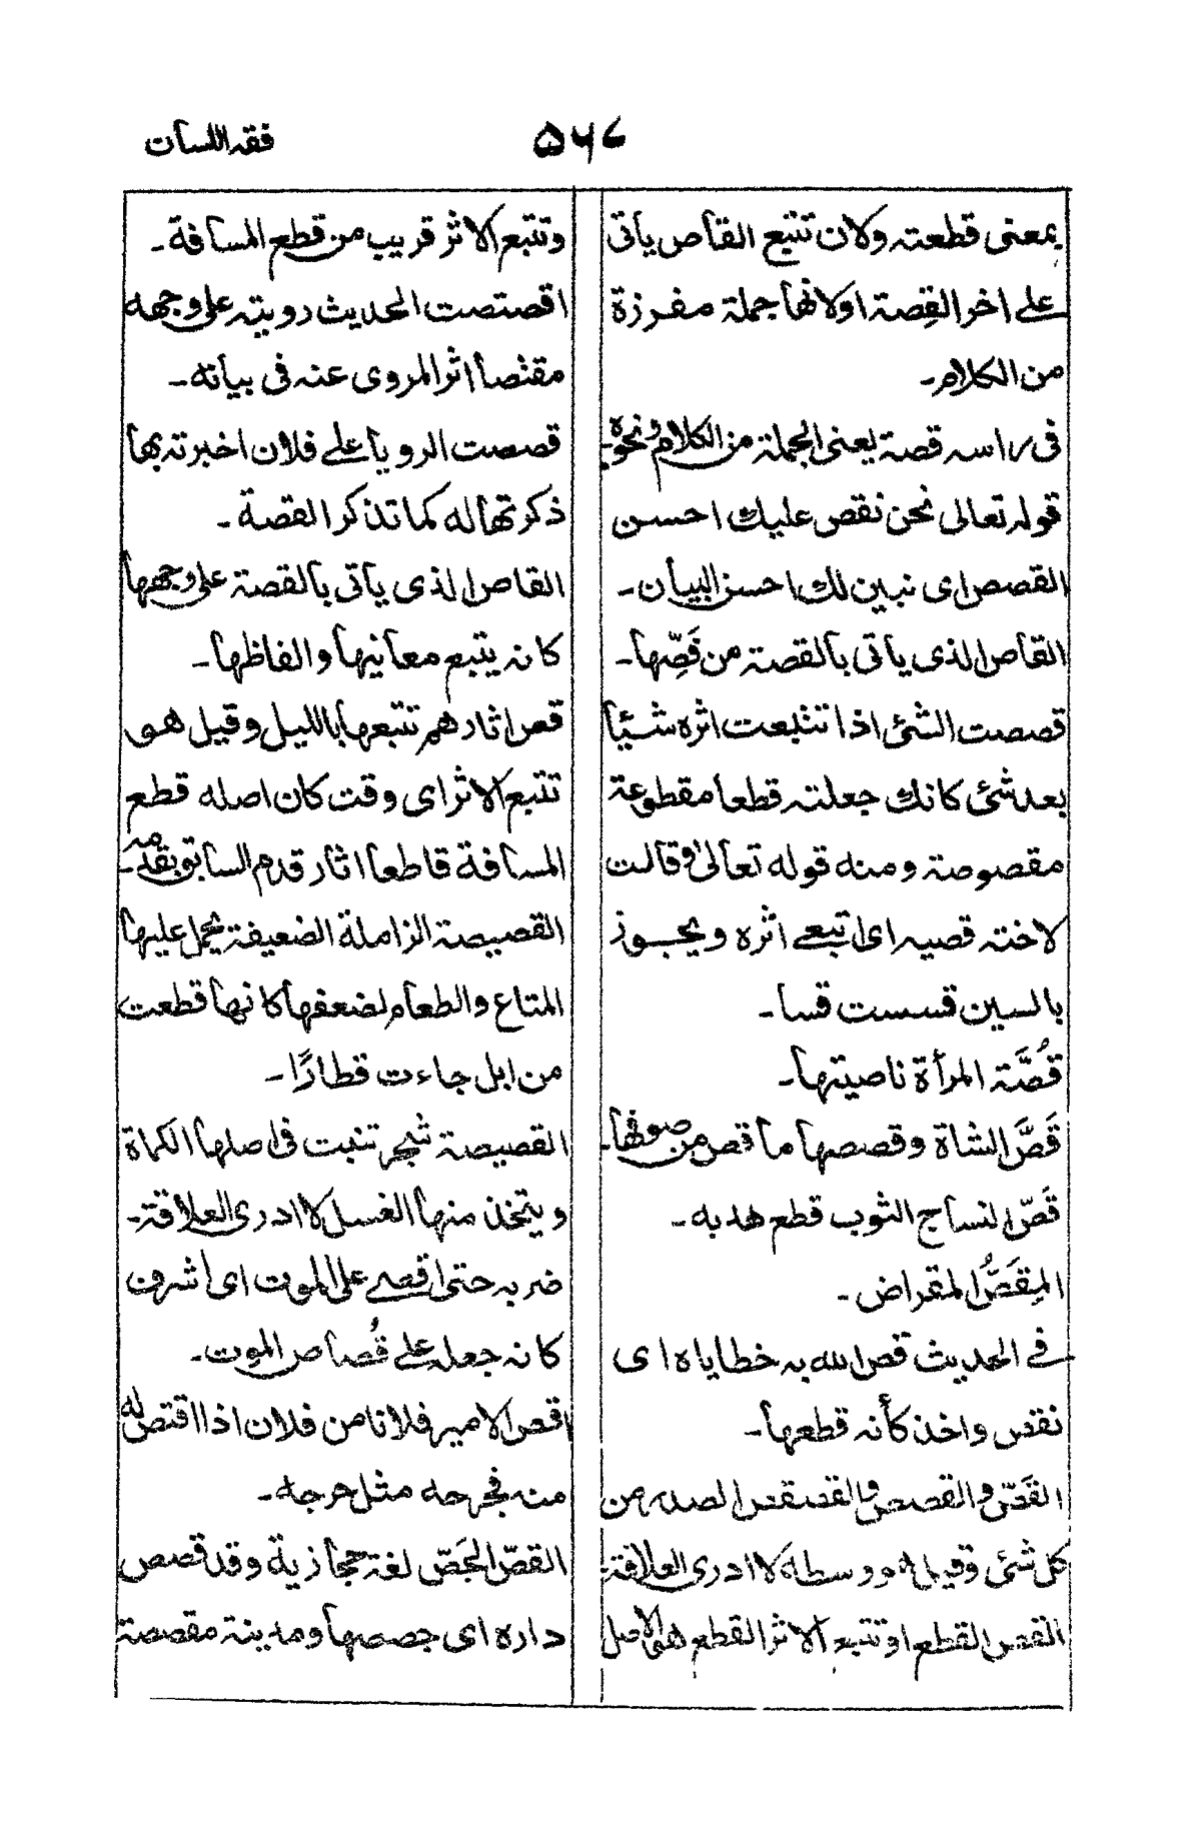 فقه اللسان
۵۶۷
بمعنى قطعته ولان تتبع القاص يأتى
على اخر القِصة اولانها جملة مفرزة
من الكلام۔
فى راسه قصة يعنى الجملة من الكلام ونحوه
قوله تعالى نحن نقص عليك احسن
القصص اى نبين لك احسن البيان۔
القاص الذى ياتى بالقصة من قَصِّها۔
قصصت الشئ اذا تتبعت اثره شيئا
بعد شئ كانك جعلته قطعا مقطوعة
مقصوصة ومنه قوله تعالى وقالت
لاخته قصيه اى اتبعى اثره ويجوز
بالسين قسست قسا۔
قُصَّة المرأة ناصيتها۔
قَصَّ الشاة وقصصها ما قص من صوفها۔
قَصّ النساج الثوب قطع هدبه۔
المِقَصُّ المقراض۔
فى الحديث قص الله به خطاياه اى
نقص واخذ كأنه قطعها۔
القَصّ والقصص والقصقص الصدر من
كل شئ وقيل هو وسطه لا ادرى العلاقة
القص القطع او تتبع الاثر القطع هى الاصل
وتتبع الاثر قريب من قطع المسافة۔
اقصتصت الحديث رويته على وجهه
مقتصا اثر المروى عنه فى بيانه۔
قصصت الرويا على فلان اخبرته بها
ذكرتها له كما تذكر القصة۔
القاص الذى يأتى بالقصة على وجهها
كانه يتبع معانيها والفاظها۔
قص اثارهم تتبعها بالليل وقيل هو
تتبع الاثر اى وقت كان اصله قطع
المسافة قاطعا اثار قدم السابق بقدمه۔
القصيصة الزاملة الضعيفة يحمل عليها
المتاع والطعام لضعفها كانها قطعت
من ابل جاءت قطارًا۔
القصيصة شجر تنبت فى اصلها الكماة
ويتخذ منها الغسل لا ادرى العلاقة۔
ضربه حتى اقصى على الموت اى اشرف
كانه جعله على قُصاص الموت۔
اقص الامير فلانا من فلان اذا اقتص له
منه فجرحه مثل جرحه۔
القصّ الجَصّ لغة حجازية وقد قصص
داره اى جصصها ومدينة مقصصة